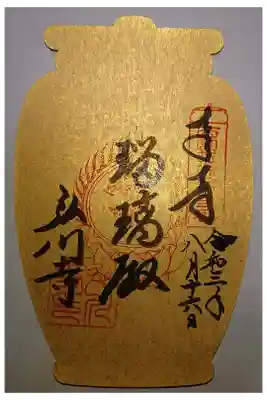 奉拝
令和三年
八月十六日
瑠璃殿
弘川寺